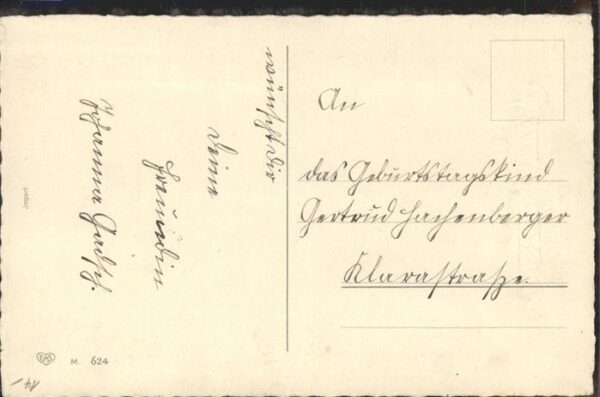 wünscht Dir
Deine
Freundin
Johanna
An
das Geburtstagskind
Gertrud Hachenberger
Klarastraße.
Import
EAS
M. 624
14/